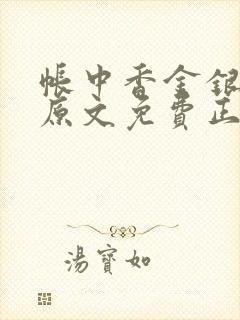 帳中香金銀
原文免費正
湯寶如